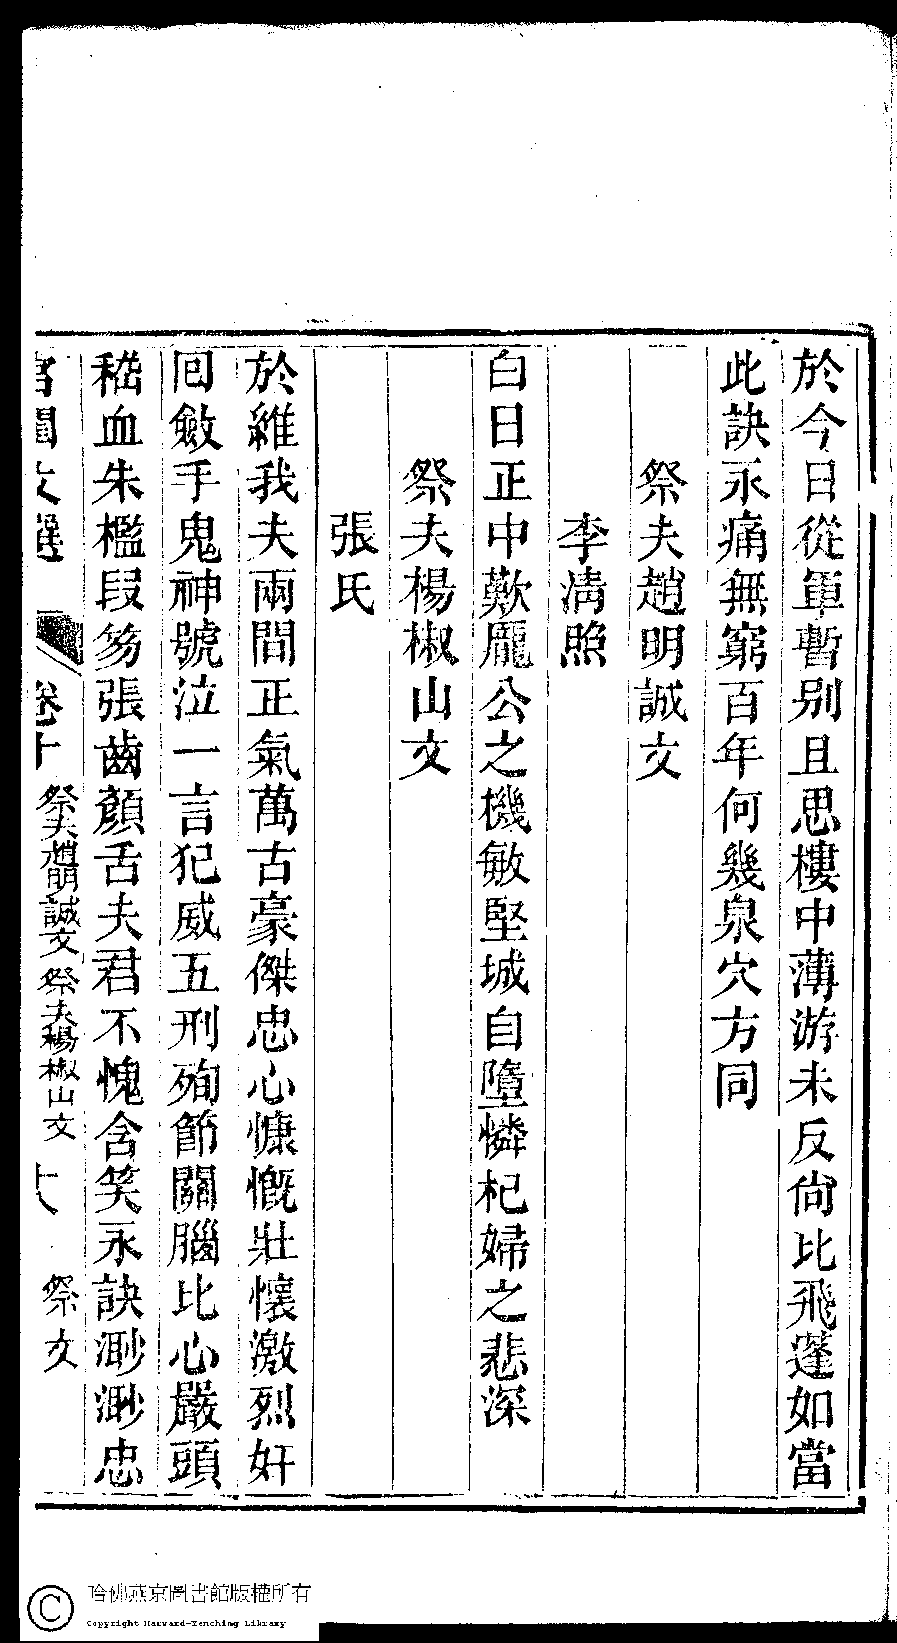 於今日從軍暫别且思樓中薄游未反尙比飛蓬如當
此訣永痛無窮百年何幾泉穴方同
祭夫趙明誠文
李淸照
白日正中歎龐公之機敏堅城自墮憐杞婦之悲深
祭夫楊椒山文
張氏
於維我夫兩間正氣萬古豪傑忠心慷慨壯懷激烈奸
回斂手鬼神號泣一言犯威五刑殉節關腦比心嚴頭
嵇血朱檻段笏張齒顏舌夫君不愧含笑永訣渺渺忠
宮閨文選 卷十 祭夫趙明誠文 祭夫楊椒山文 十八 祭文
哈佛燕京圖書館版權所有
Copyright Harvard-Yenching Library